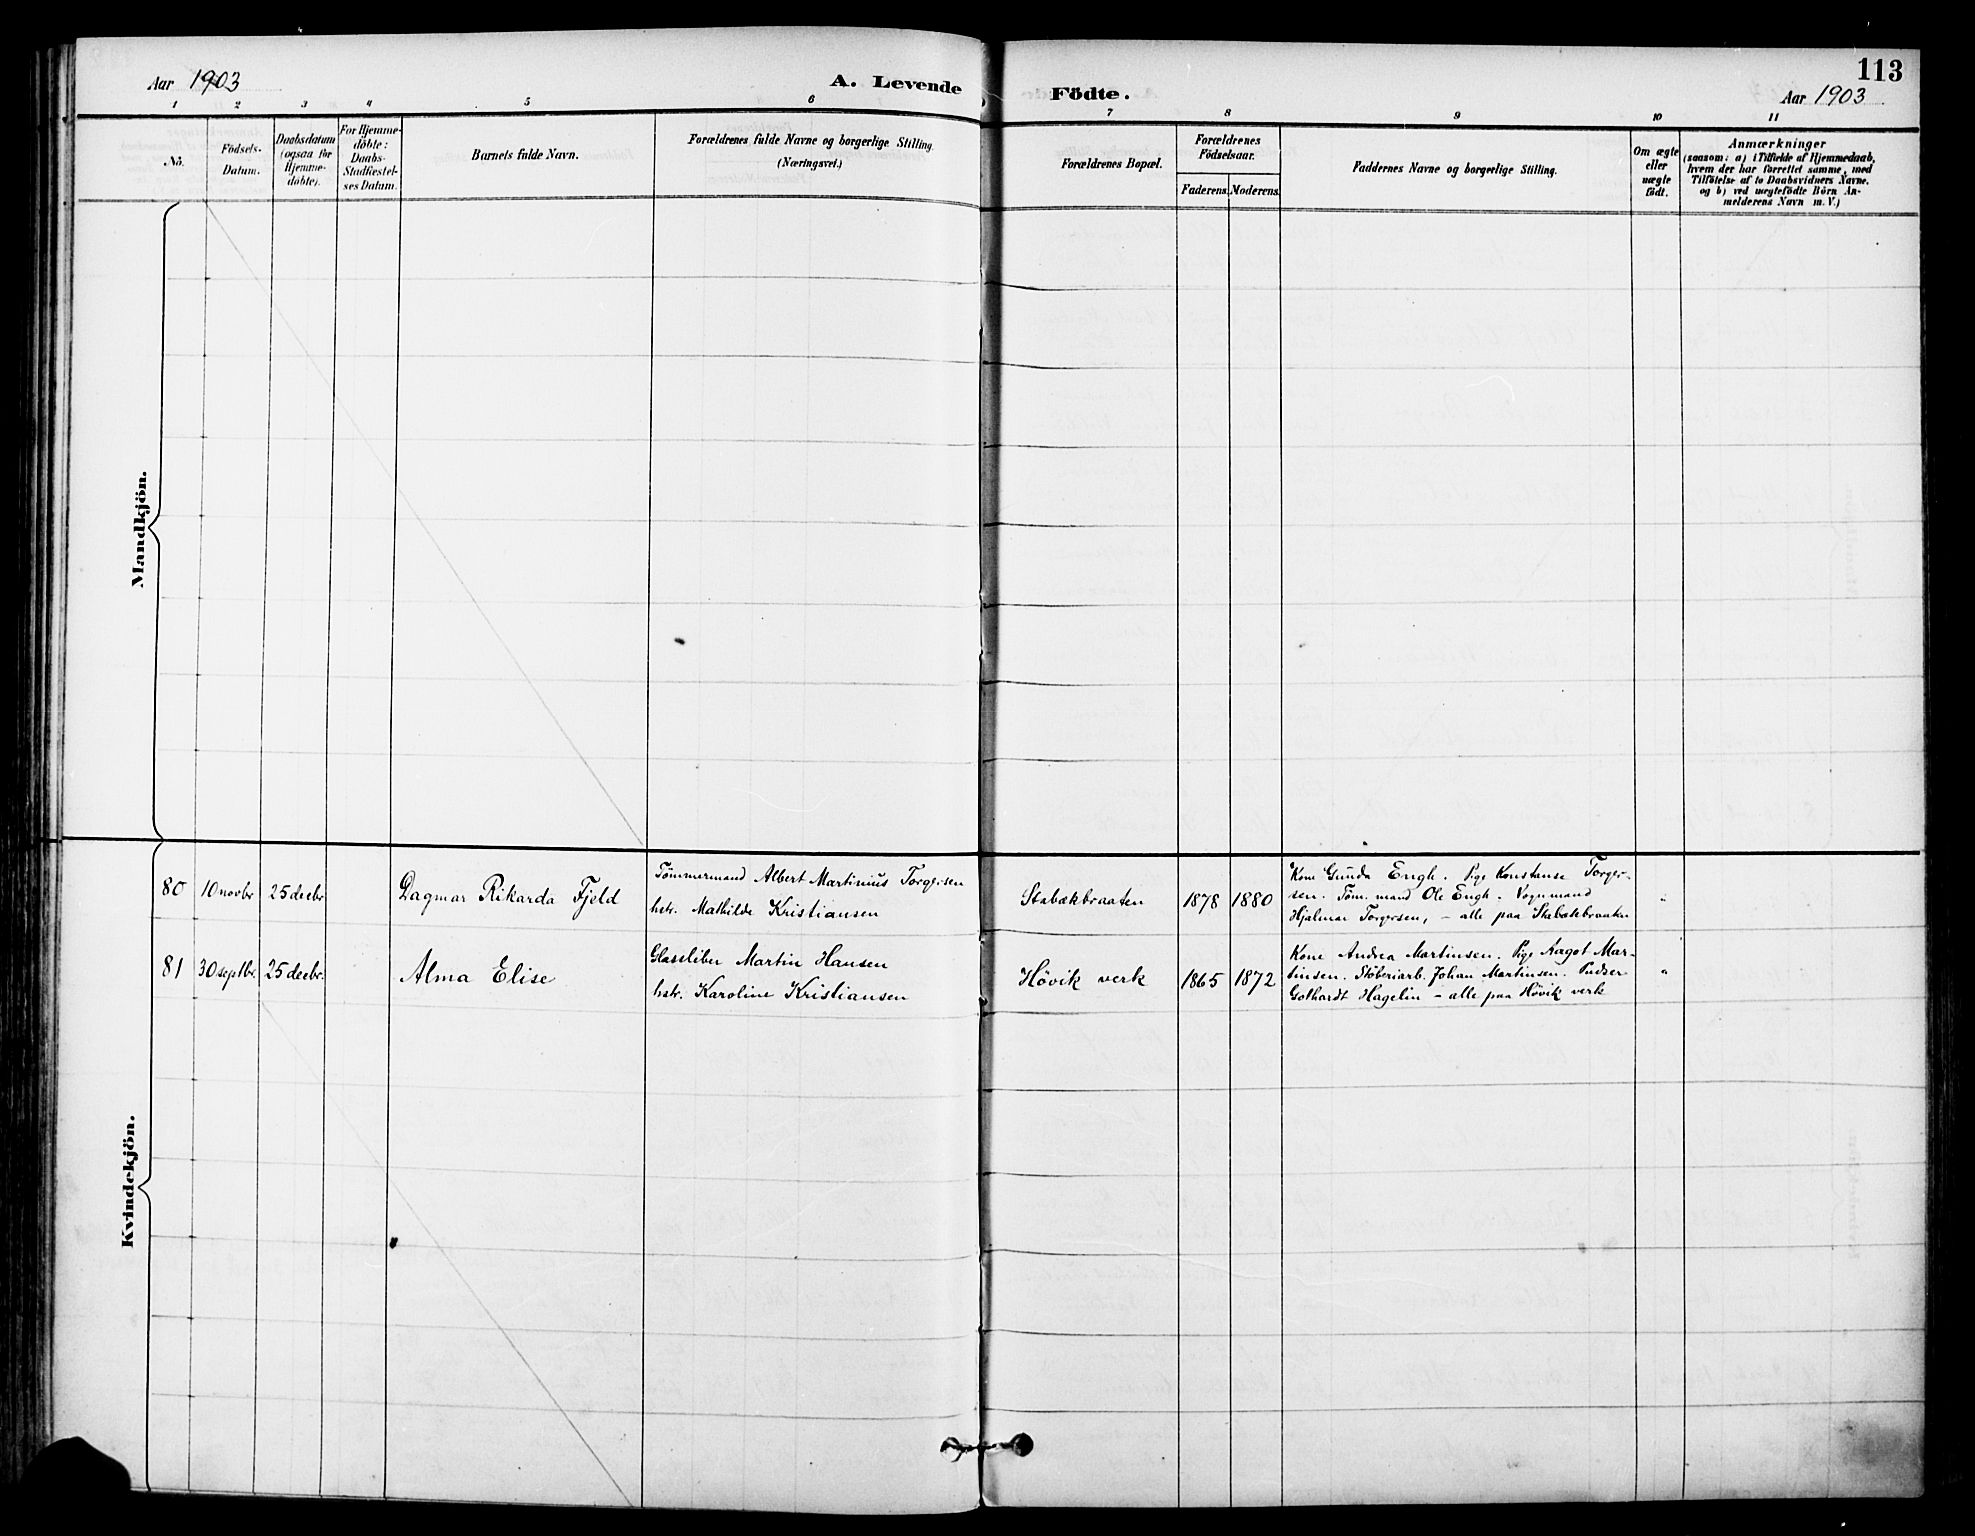 Aar 1903
A. Levende
Födte.
113
Aar 1903
1 2 3 4 5 6 7 8 9 10 11
No.
Födsels-
Datum.
Daabsdatum
(ogsaa for
Hjemme-
döbte).
For Hjemme-
döbte:
Daabs-
Stadfæstel-
ses Datum.
Barnets fulde Navn.
Forældrenes fulde Navne og borgerlige Stilling.
(Næringsvei.)
Forældrenes Bopæl.
Forældrenes
Födselsaar.
Faderens. Moderens.
Faddernes Navne og borgerlige Stilling.
Om ægte
eller
uægte
födt.
Anmærkninger
(saasom: a) i Tilfælde af Hjemmedaab,
hvem der har forrettet samme, med
Tilföielse af to Daabsvidners Navne,
og b) ved uægtefödte Börn An-
melderens Navn m. V.)
Mandkjön.
Kvindekjön.
80 10 novbr 25 decbr Dagmar Rikarda Fjeld
Tömmermand Albert Martinius Torgersen
hstr. Mathilde Kristiansen
Stabækbraaten 1878 1880
Kone Gunda Engh. Pige Konstanse Torger-
sen. Töm.mand Ole Engh. Vognmand
Hjalmar Torgersen, – alle paa Stabækbraaten
"
81 30 septbr. 25 decbr. Alma Elise
Glassliber Martin Hansen
hstr. Karoline Kristiansen
Hövik verk 1865 1872
Kone Andrea Martinsen. Pige Ragot Mar-
tinsen. Stöberiarb. Johan Martinsen. Pudser
Gothardt Hagelin – alle paa Hövik verk
"